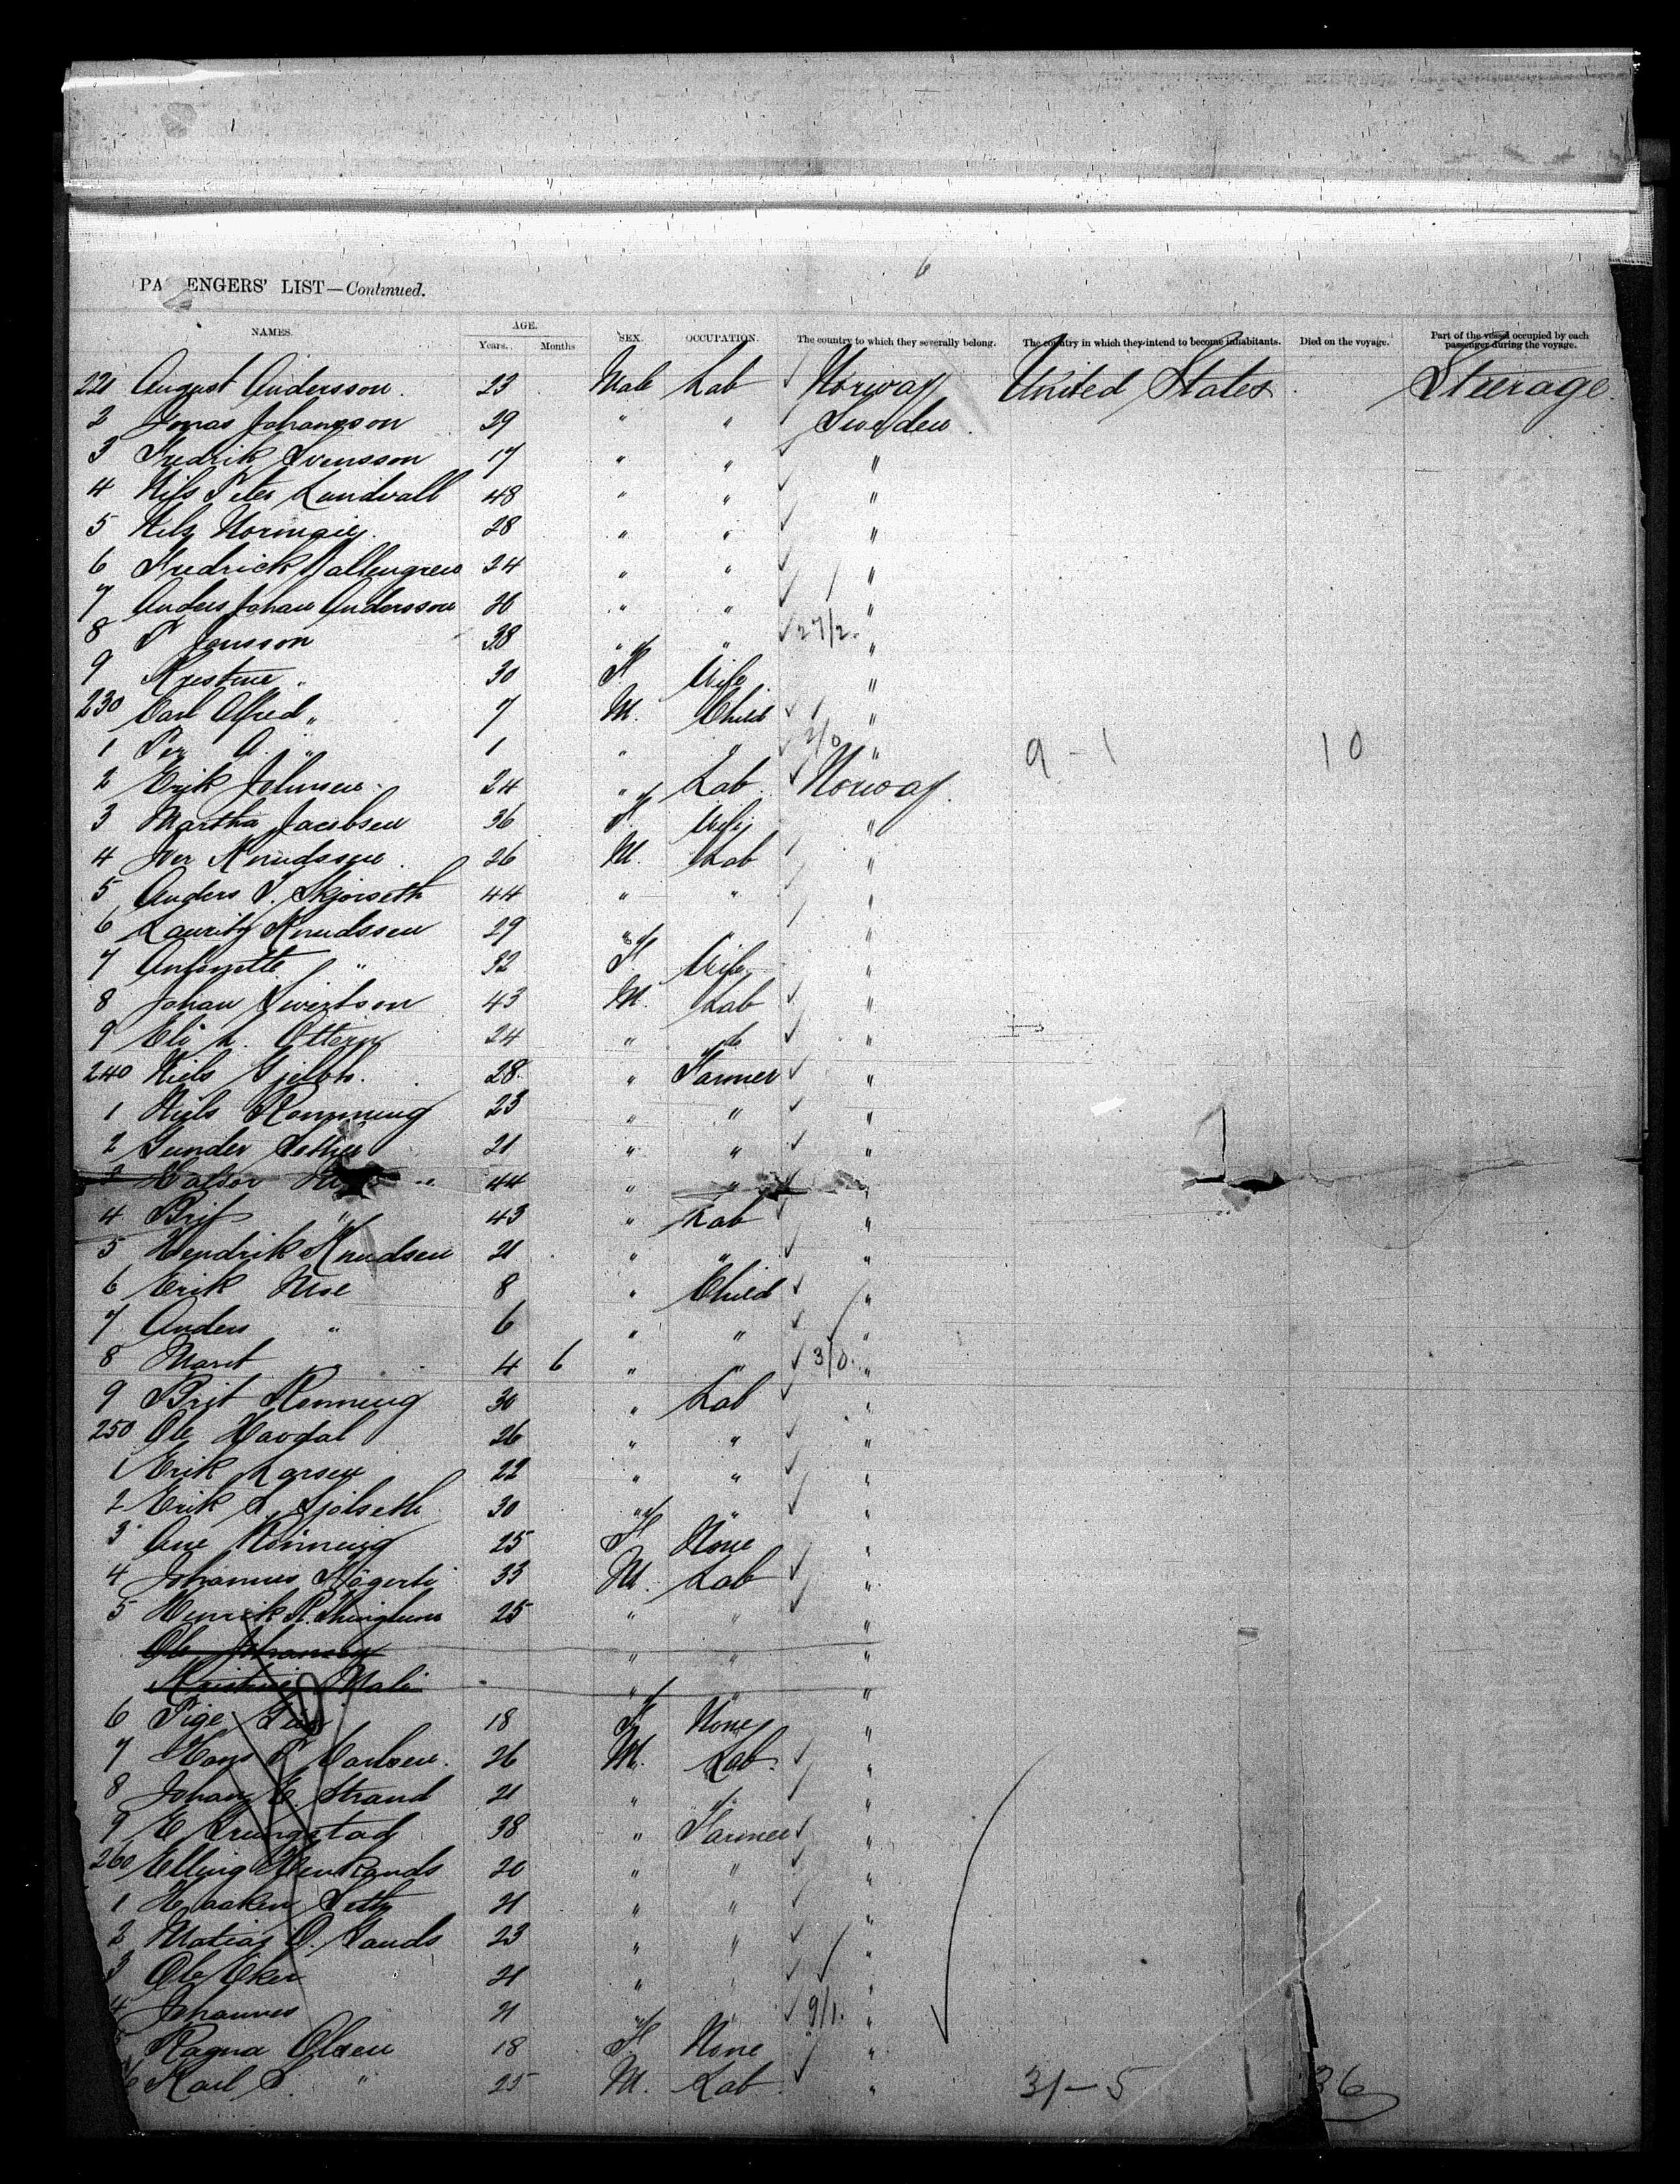 6
PA ENGERS' LIST—Continued.
NAMES. AGE. Years. Months SEX. OCCUPATION. The country to which they severally belong. The country in which they intend to become inhabitants. Died on the voyage. Part of the vessel occupied by each passenger during the voyage.
221 August Andersson. 23 Male Lab Norway United States Steerage.
2 Jonas Johansson 29 " " Sweden
3 Fredrik Svensson 17 " " "
4 Nils Peter Lundvall 48 " " "
5 Nils 28 " " "
6 Fredrick Wallengren 24 " " "
7 Anders Johan Andersson 26 " " "
8 P Jonsson 38 " " 27/2. "
9 Kristine " 30 F. Wife "
230 Carl Alfred " 7 M. Child "
1 Per A. " 1 " " 2/0 " 9-1 10
2 Erik Johnsen 24 " Lab. Norway.
3 Martha Jacobsen 36 F. Wife "
4 Iver Knudssen. 26 M. Lab "
5 Anders P. Skjorseth 44 " " "
6 Lauritz Knudssen 29 " " "
7 Antonette " 32 F. Wife "
8 Johan Sivertson 43 M. Lab "
9 Eli L. 24 " "
240 Niels 28 " Farmer "
1 Niels Ronning 23 " " "
2 Gunder 21 " " "
3 Haldor " 44 " " "
4 Brit " 43 " Lab "
5 Hendrik Knudsen 21 " " "
6 Erik Moe 8 " Child "
7 Anders " 6 " " "
8 Marit 4 6 " " 3/0. "
9 Brit Ronning 30 " Lab "
250 Ole Havdal 26 " " "
1 Erik Larsen 22 " " "
2 Erik S. 30 " " "
3 Ane Ronning 25 F None "
4 Johannes 33 M. Lab "
5 Henrik R. 25 " " "
Ole Johansen " " "
Kristine Mali " " "
6 Pige 18 F None "
7 Hans P. Carlsen. 26 M. Lab. "
8 Johan E. Strand 21 " " "
9 E 38 " Farmer "
260 Elling 20 " " "
1 Haaken 21 " " "
2 Matias O. Sands 23 " " "
3 Ole Eker 21 " " "
4 Johannes 21 " " 9/1. "
Ragna Olsen 18 F. None "
6 Karl S. " 25 M. Lab. " 31-5 36